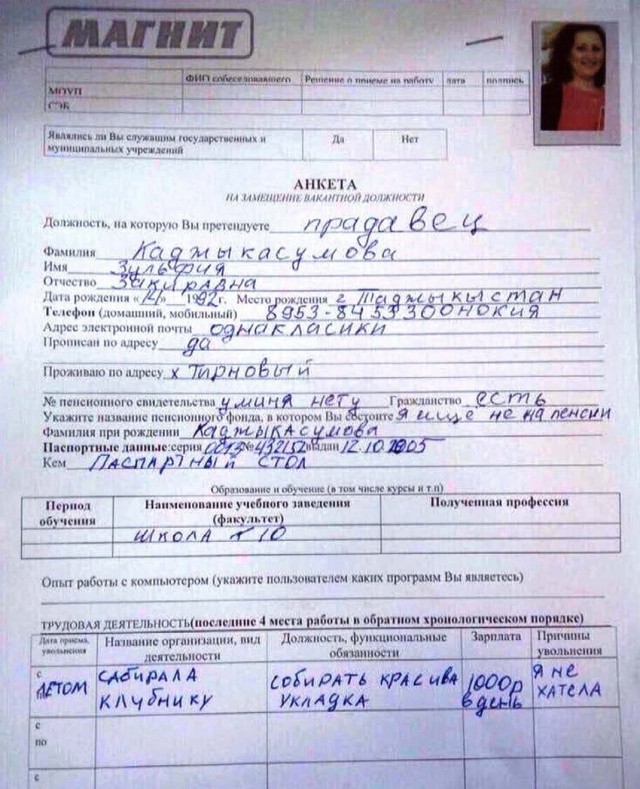 МАГНИТ
ФИО собеседовавшего Решение о приеме на работу дата подпись
МОУП
СЭБ
Являлись ли Вы служащим государственных и муниципальных учреждений Да Нет
АНКЕТА
НА ЗАМЕЩЕНИЕ ВАКАНТНОЙ ДОЛЖНОСТИ
Должность, на которую Вы претендуете прадавец
Фамилия Каджыкасумова
Имя Зульфия
Отчество Закиравна
Дата рождения «14» 1992г. Место рождения г Таджыкыстан
Телефон (домашний, мобильный) 8953-8453300нокия
Адрес электронной почты однакласики
Прописан по адресу да
Проживаю по адресу х Тирновый
№ пенсионного свидетельства у миня нету Гражданство есть
Укажите название пенсионного фонда, в котором Вы состоите я ищё не на пенсии
Фамилия при рождении Каджыкасумова
Паспортные данные: серия 0013 № 432152 выдан 12.10.2005
Кем Паспартный стол
Образование и обучение (в том числе курсы и т.п)
Период обучения Наименование учебного заведения (факультет) Полученная профессия
школа 10
Опыт работы с компьютером (укажите пользователем каких программ Вы являетесь)
ТРУДОВАЯ ДЕЯТЕЛЬНОСТЬ(последние 4 места работы в обратном хронологическом порядке)
Дата приема, увольнения Название организации, вид деятельности Должность, функциональные обязанности Зарплата Причины увольнения
с летом сабирала клубнику собирать красива укладка 1000р в день я не хатела
с
по
с